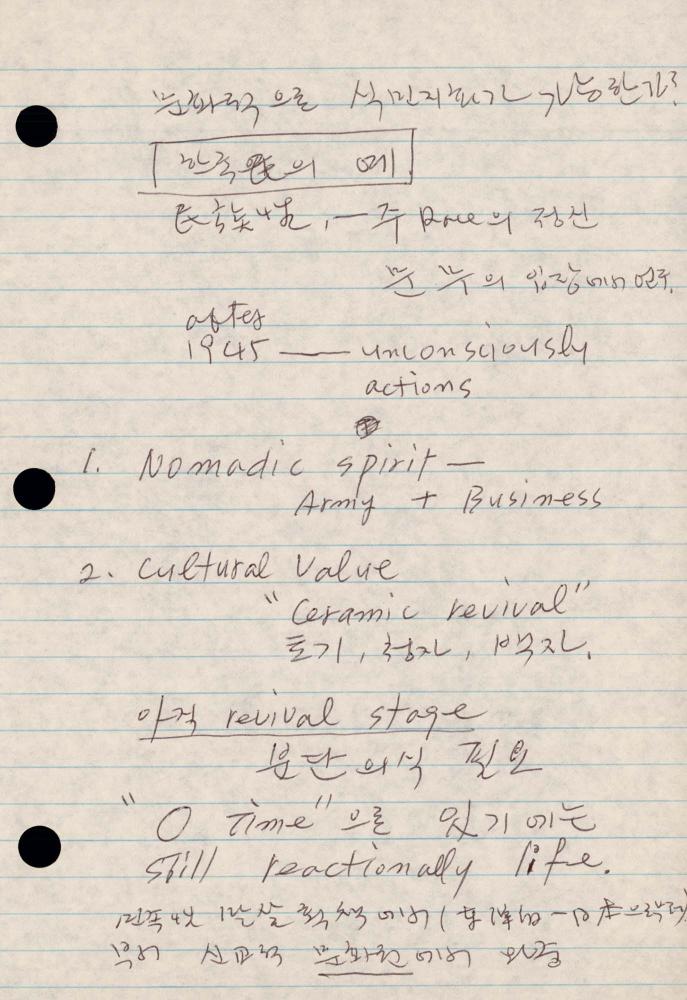 문화적으로 식민지화가 가능한가?
한국民의 예
民族 , 一 주 Race의 정신
문 의 입장에서 연구.
after
1945 — unconsciously
actions
1. Nomadic spirit —
Army + Business
2. Cultural Value
"Ceramic revival"
토기, 청자, 백자.
아직 revival stage
분단의식 필요
"O Time"으로 있기에는
still reactionally life.
민족 말살 획책에서 ( 日本
문화권에서